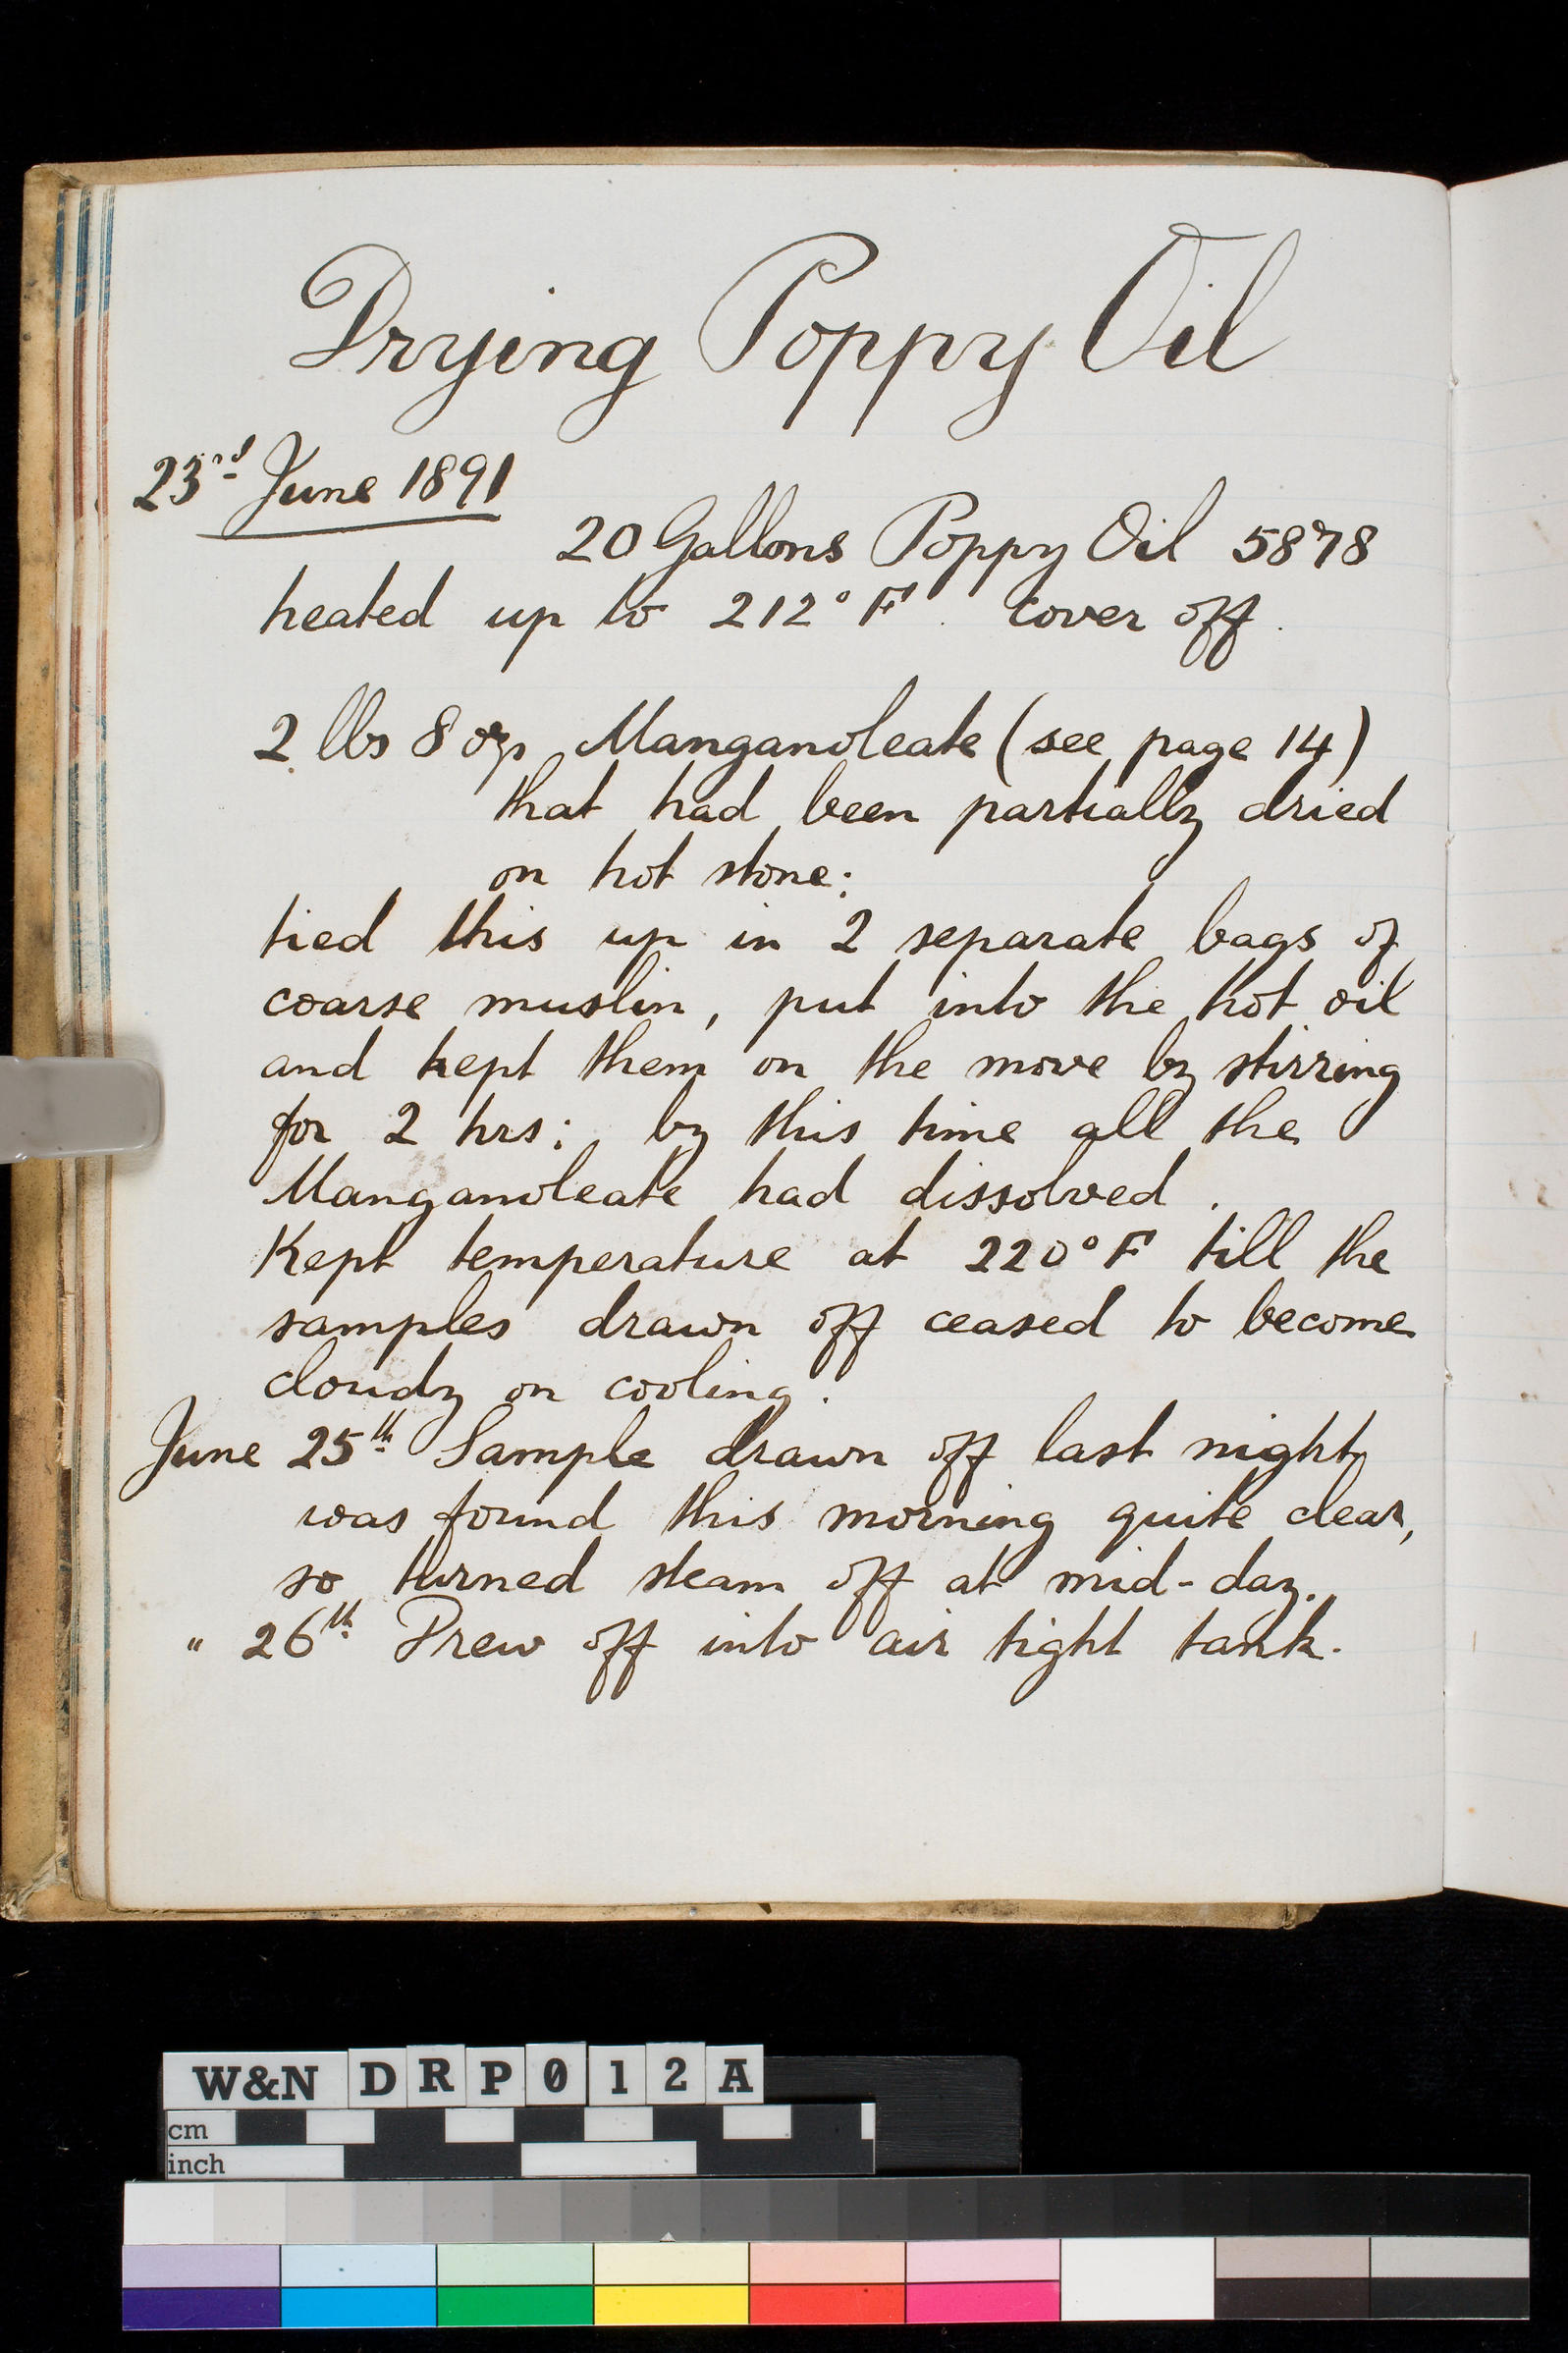 Drying Poppy Oil
23rd June 1891
20 Gallons Poppy Oil 5878
heated up to 212° F. cover off.
2 lbs 8 ozs Manganoleate (see page 14)
that had been partially dried
on hot stone:
tied this up in 2 separate bags of
coarse muslin, put into the hot oil
and kept them on the move by stirring
for 2 hrs: by this time all the
Manganoleate had dissolved.
Kept temperature at 220° F till the
samples drawn off ceased to become
cloudy on cooling.
June 25th Sample drawn off last night
was found this morning quite clear,
so turned steam off at mid-day.
" 26th Drew off into air tight tank.
W&N DRP012A
cm
inch